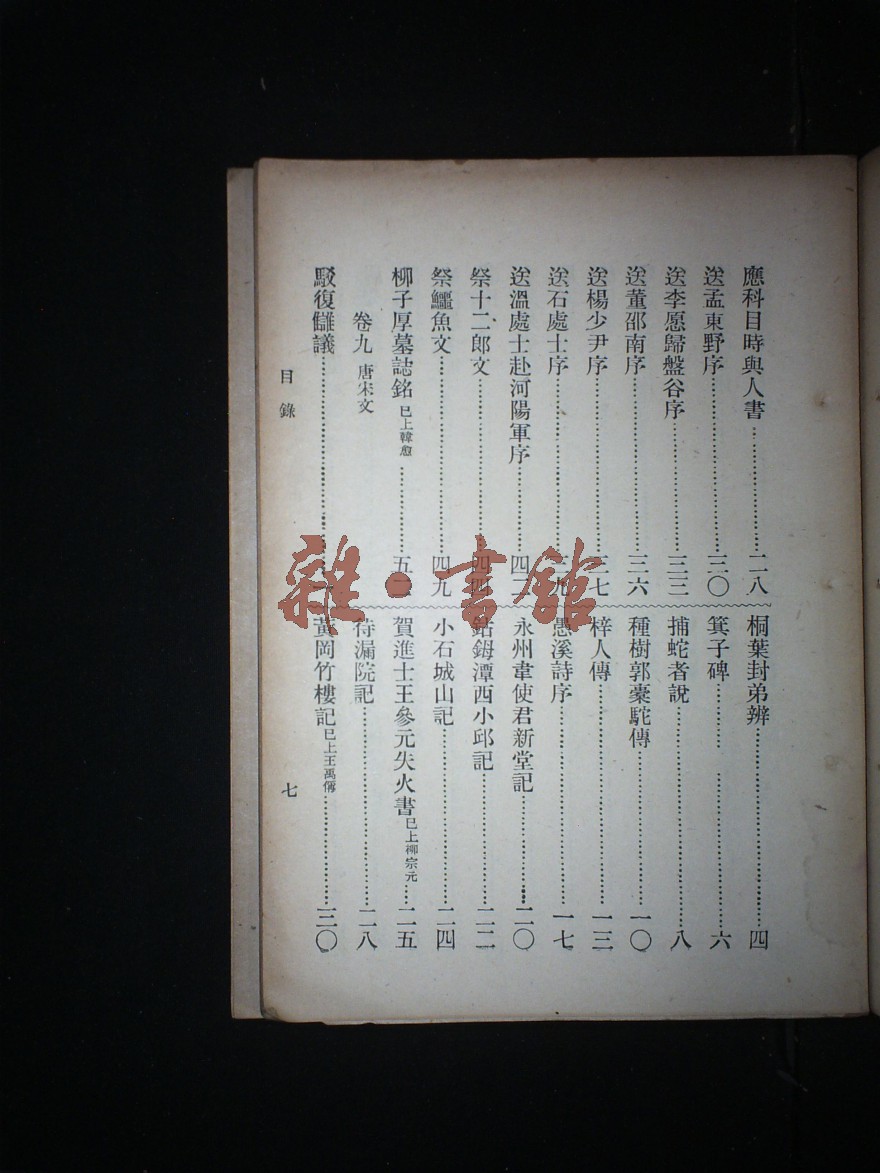 應科目時與人書…二八
送孟東野序…三〇
送李愿歸盤谷序…三三
送董邵南序…三六
送楊少尹序…三七
送石處士序…三九
送溫處士赴河陽軍序…四二
祭十二郎文…四四
祭鱷魚文…四九
柳子厚墓誌銘 已上韓愈…五
卷九 唐宋文
駁復讎議…一
桐葉封弟辨…四
箕子碑…六
捕蛇者說…八
種樹郭橐駝傳…一〇
梓人傳…一三
愚溪詩序…一七
永州韋使君新堂記…二〇
鈷鉧潭西小邱記…二二
小石城山記…二四
賀進士王參元失火書 已上柳宗元…二五
待漏院記…二八
黃岡竹樓記 已上王禹偁…三〇
目錄
七
雜·書館